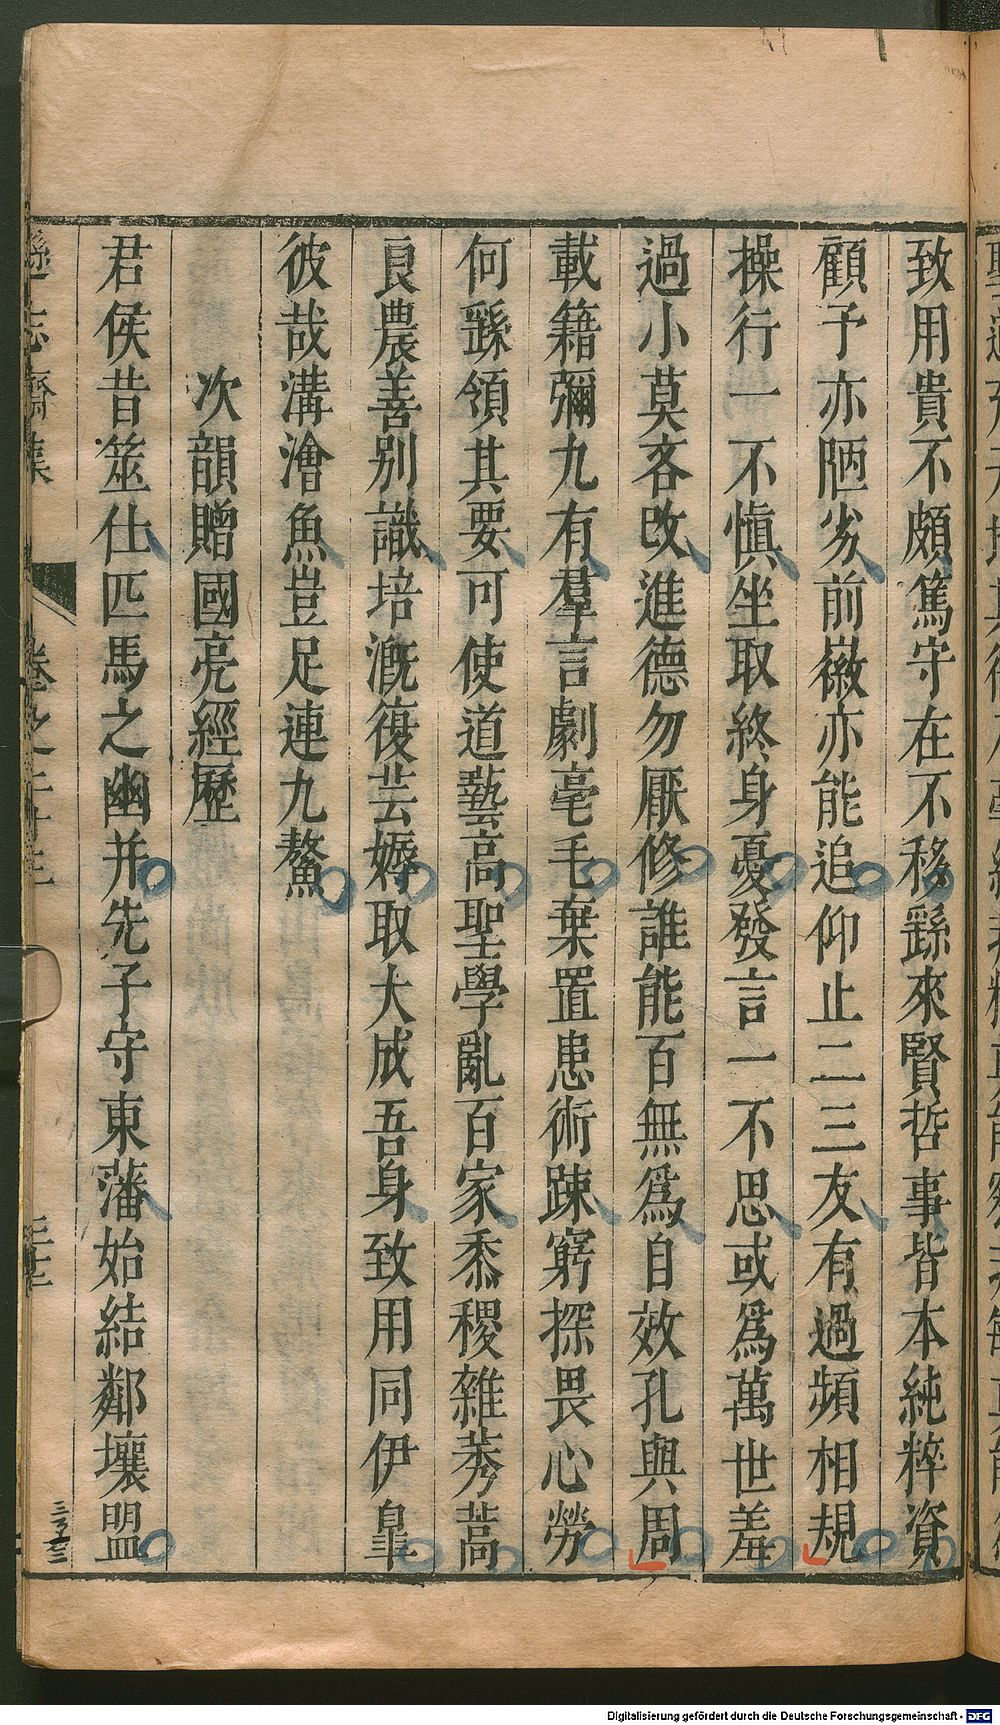 致用貴不頗篤守在不移繇來賢哲事皆本純粹資
顧予亦陋劣前徽亦能追仰止二三友有過頻相規
操行一不慎坐取終身憂發言一不思或爲萬世羞
過小莫吝改進德勿厭修誰能百無爲自效孔與周
載籍彌九有羣言劇毫毛棄置患術踈窮探畏心勞
何繇領其要可使道藝高聖學亂百家黍稷雜莠蒿
良農善别識培溉復芸媷取大成吾身致用同伊臯
彼哉溝澮魚豈足連九鰲
次韻贈國亮經歷
君侯昔筮仕匹馬之幽并先子守東藩始結鄰壤盟
遜志齋集
卷之二十三
Digitalisierung gefördert durch die Deutsche Forschungsgemeinschaft - DFG